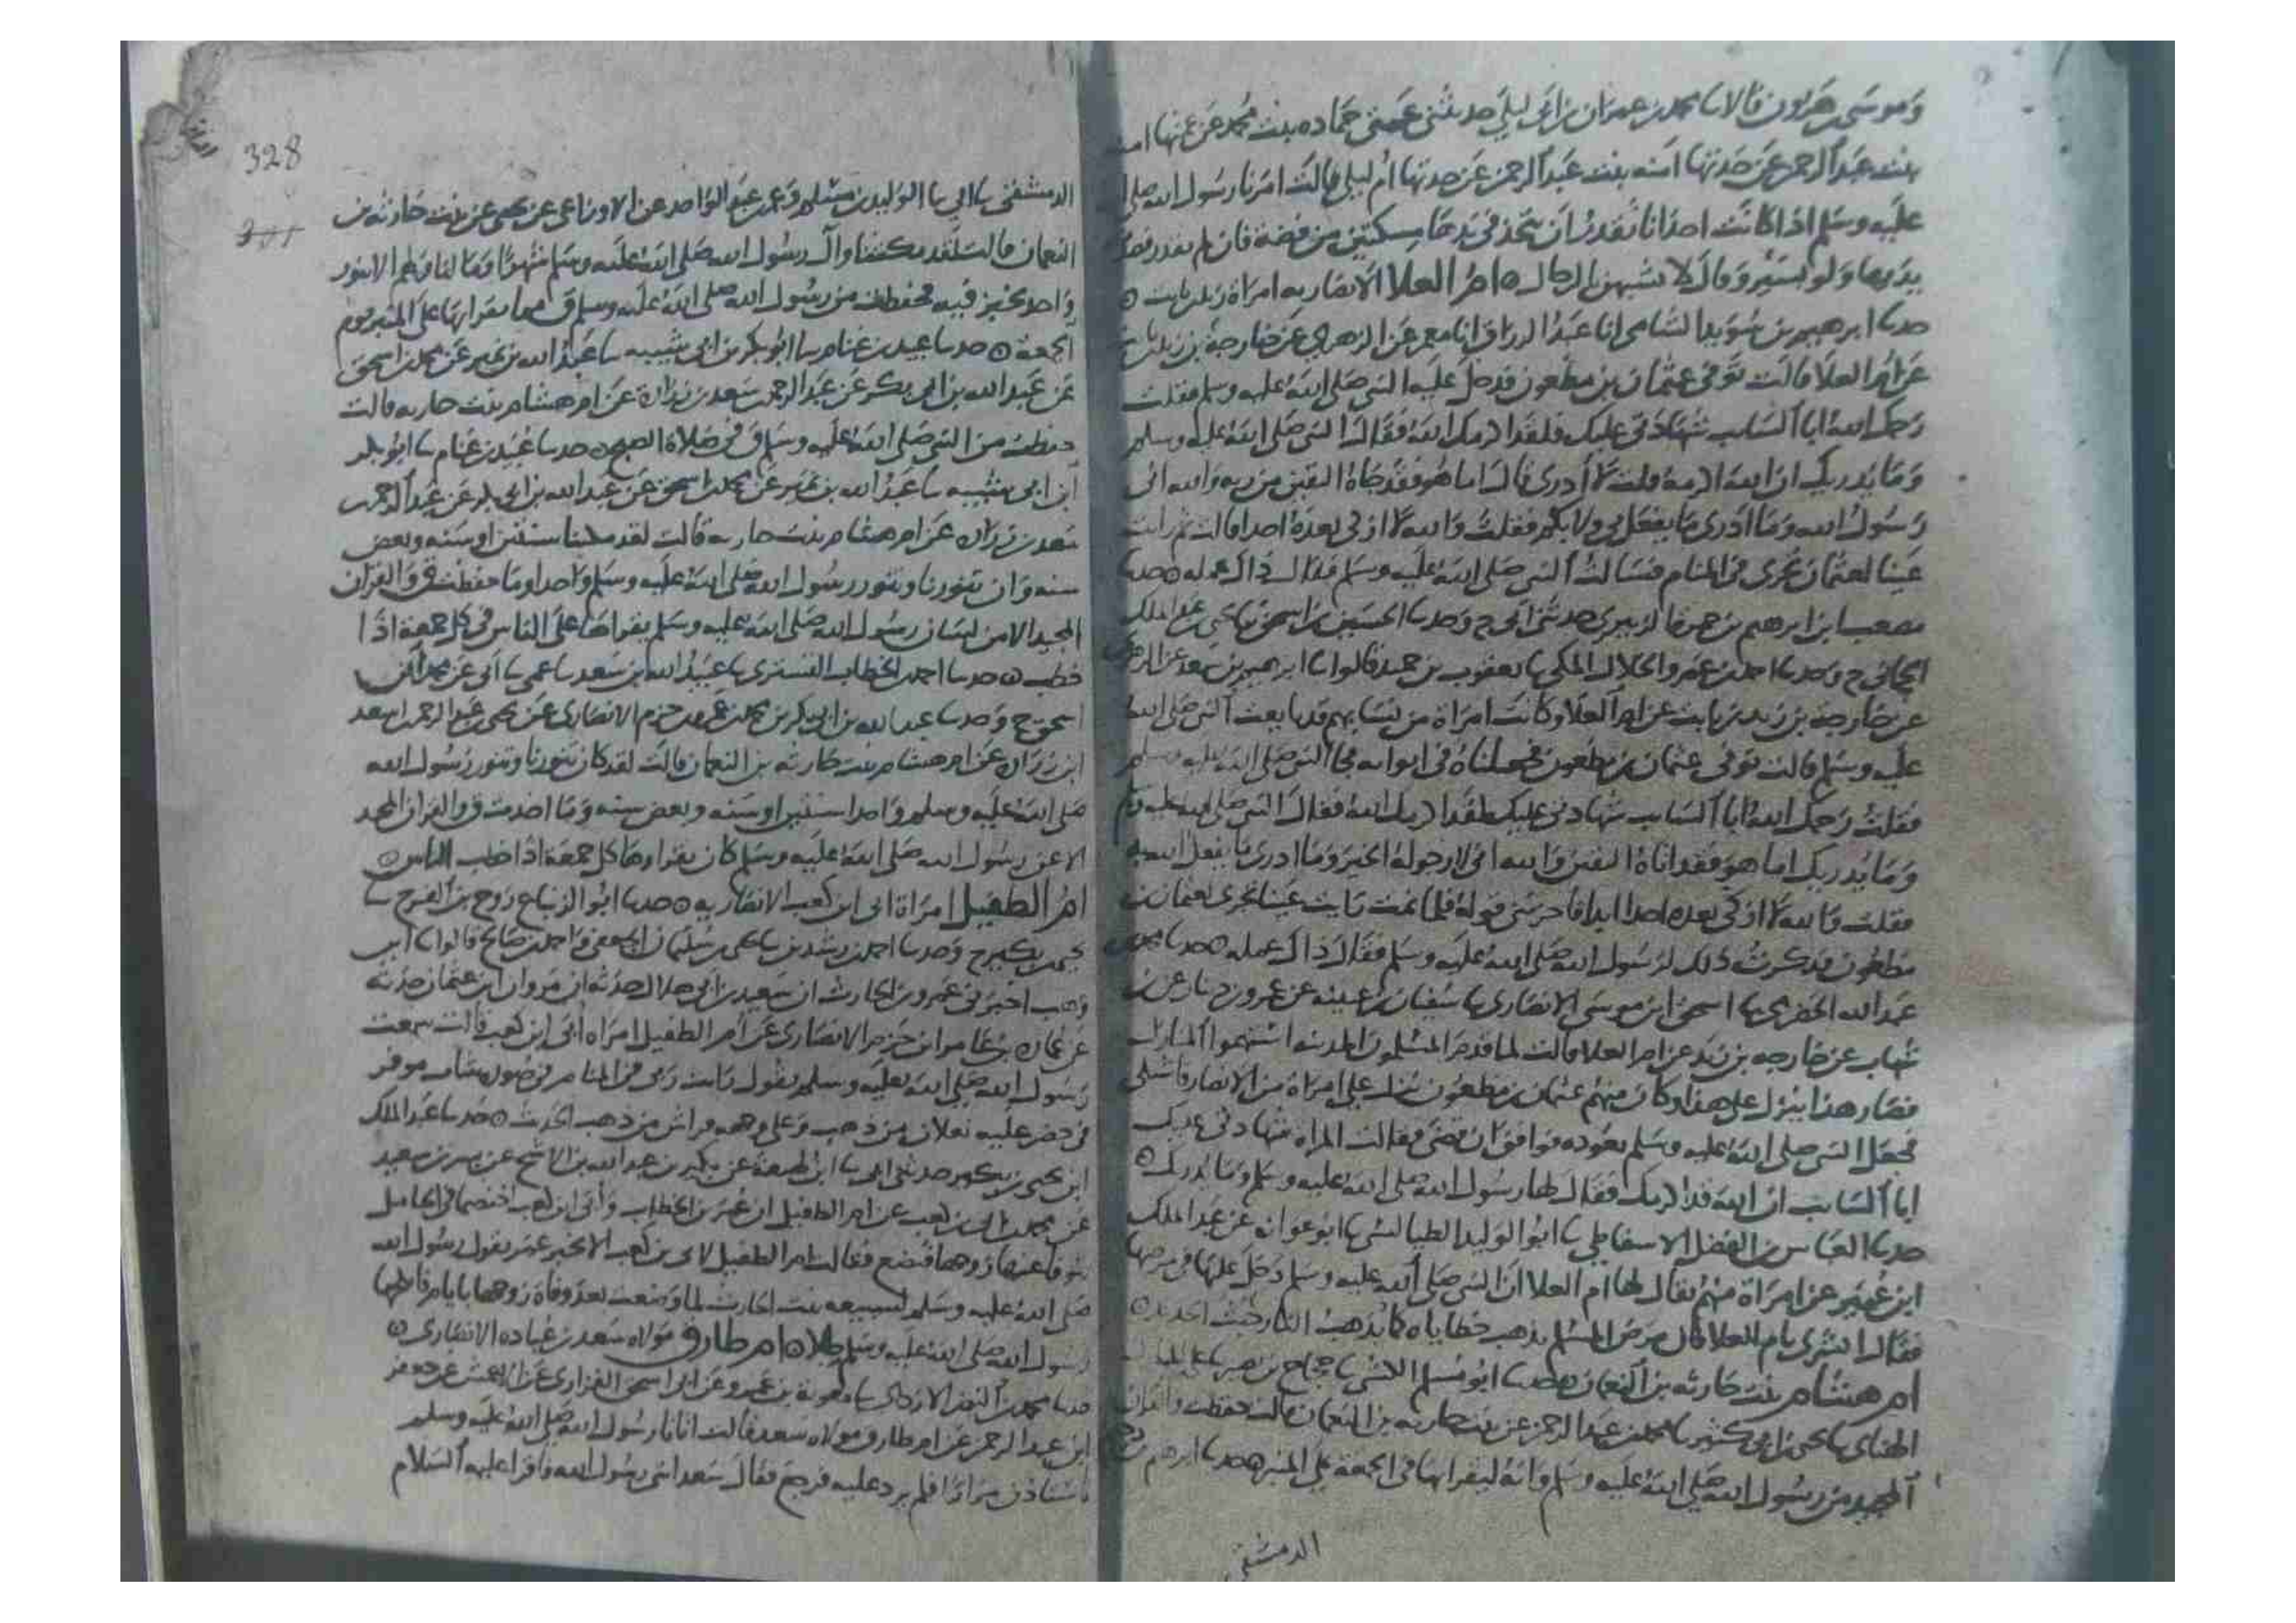 وموسى هرون قالا سا محمد بن عمران بن ابى ليلى حدثتنى عمتى حماده بنت محمد عن عمتها امنه
بنت عبد الرحمن عن جدتها امنه بنت عبد الرحمن عن جدتها ام ليلى قالت امرنا رسول الله صلى الله
عليه وسلم اذا كانت احدانا تقدر ان تتخذ فى يدها مسكتين من فضة فان لم تقدر فصلت
يديها ولو بسير وقال لا تشبهن بالرجال ه ام العلا الانصاريه امراة زيد بن ثابت ه
حدسا ابرهيم بن سويد الشامى انا عبد الرزاق انا معمر عن الزهرى عن خارجة بن زيد بن ثابت
عن ام العلا قالت توفى عثمان بن مظعون فدخل عليه النبى صلى الله عليه وسلم فقلت
رحمك الله ابا السايب شهادتى عليك فلقد اكرمك الله فقال النبى صلى الله عليه وسلم
وما يدريك ان الله اكرمه قلت لا أدرى قال اما هو فقد جاه اليقين من ربه والله انى
رسول الله وما ادرى ما يفعل بى ولا بكم فقلت والله لا ازكى بعده احدا قالت ثم رايت
عينا لعثمان تجرى فى المنام فسالت النبى صلى الله عليه وسلم فقال ذاك عمله ه حدسا
مصعب ابن ابرهيم بن حمزة الزبيرى حدثنى ابى ح وحدسا الحسين بن اسحق سا يحى بن عبد الملك
الحمانى ح وحدسا احمد بن عمرو الخلال المكى سا يعقوب بن حميد قالوا سا ابرهيم بن سعد عن الزهرى
عن خارجة بن زيد بن ثابت عن ام العلا وكانت امراة من نسايهم قد بايعت النبى صلى الله
عليه وسلم قالت توفى عثمان بن مظعون فجعلناه فى اثوابه فجا النبى صلى الله عليه وسلم
فقلت رحمك الله ابا السايب شهادتى عليك لقد اكرمك الله فقال النبى صلى الله عليه وسلم
وما يدريك اما هو فقد اتاه اليقين والله انى لارجو له الخير وما ادرى ما يفعل الله
فقلت والله لا ازكى بعده احدا ابدا فاحزننى قوله فلما نمت رايت عينا تجرى لعثمان بن
مظعون فذكرت ذلك لرسول الله صلى الله عليه وسلم فقال ذاك عمله ه حدسا محمد بن
عبد الله الحضرمى سا اسحق ابن موسى الانصارى سا سفيان بن عيينه عن عمرو بن دينار عن بن
شهاب عن خارجه بن زيد عن ام العلا قالت لما قدم المسلمون المدينه استهموا المنازل
فصار هذا ينزل على هذا وكان منهم عثمان بن مظعون نزل على امراة من الانصار فاشتكى
فجعل النبى صلى الله عليه وسلم يعوده فوافق ان قضى فقالت المراه شهادتى عليك
ابا السايب ان الله قد اكرمك فقال لها رسول الله صلى الله عليه وسلم وما يدريك ه
حدسا العباس بن الفضل الاسفاطى سا ابو الوليد الطيالسى سا ابو عوانه عن عبد الملك
ابن عمير عن امراة منهم يقال لها ام العلا ان النبى صلى الله عليه وسلم دخل عليها فى مرضها
فقال ابشرى يام العلا فان مرض المسلم يذهب خطاياه كما تذهب النار خبث الحديد ه
ام هشام بنت حارثه بن النعمان ه حدسا ابو مسلم الكشى سا حجاج بن نصير سا على بن المبارك
الهناى سا يحيى بن ابى كثير سا محمد بن عبد الرحمن عن بنت حارثه بن النعمان قالت حفظت ق والقران
المجيد من رسول الله صلى الله عليه وسلم وانه ليقراها فى الجمعة على المنبر ه حدسا ابرهيم بن دحيم
الدمشقى
328
الدمشقى سا ابى سا الوليد بن مسلم وعمر بن عبد الواحد عن الاوزاعى عن يحيى عن بنت حارثه بن
النعمان قالت لقد مكثنا وال رسول الله صلى الله عليه وسلم شهرا وما لنا ولهم الا تنور
واحد نخبز فيه فحفظت من رسول الله صلى الله عليه وسلم ق مما يقراها على المنبر يوم
الجمعة ه حدسا عبيد بن غنام سا ابو بكر بن ابى شيبه سا عبد الله بن نمير عن محمد بن اسحق
عن عبد الله بن ابى بكر عن عبد الرحمن سعد بن زراره عن ام هشام بنت حارثه قالت
حفظت من النبى صلى الله عليه وسلم ق فى صلاة الصبح ه حدسا عبيد بن غنام سا ابو بكر
ابن ابى شيبه سا عبد الله بن نمير عن محمد بن اسحق عن عبد الله بن ابى بكر عن عبد الرحمن
سعد بن زراره عن ام هشام بنت حارثه قالت لقد مكثنا سنتين او سنه وبعض
سنه وان تنورنا وتنور رسول الله صلى الله عليه وسلم واحدا وما حفظت ق والقران
المجيد الا من لسان رسول الله صلى الله عليه وسلم يقراها على الناس فى كل جمعة اذا
خطب ه حدسا احمد الخطاب التسترى سا عبيد الله بن سعد سا عمى سا ابى عن محمد ابن
اسحق ح وحدسا عبد الله بن ابى بكر بن محمد عمرو بن حزم الانصارى عن يحى بن عبد الرحمن سعد
ابن زراره عن ام هشام بنت حارثه بن النعمان قالت لقد كان تنورنا وتنور رسول الله
صلى الله عليه وسلم واحدا سنتين او سنه وبعض سنه وما اخذت ق والقران المجيد
الا عن رسول الله صلى الله عليه وسلم كان يقراها كل جمعة اذا خطب الناس ه
ام الطفيل امراة ابى ابن كعب الانصاريه ه حدسا ابو الزنباع روح بن الفرج سا
يحيى بن بكير ح وحدسا احمد بن رشدين سا يحى بن سليمان الجعفى واحمد بن صالح قالوا سا ابن
وهب اخبرنى عمرو بن الحارث ان سعيد بن ابى هلال حدثه ان مروان ابن عثمان حدثه
عن عماره بن عامر ابن حزم الانصارى عن ام الطفيل امراه ابى ابن كعب قالت سمعت
رسول الله صلى الله عليه وسلم يقول رايت ربى فى المنام فى صورة شاب موفر
فى خضر عليه نعلان من ذهب وعلى وجهه فراش من ذهب الحديث ه حدسا عبد الملك
ابن يحيى بن بكير حدثنى ابى سا ابن لهيعة عن بكير بن عبد الله بن الاشج عن بسر بن سعيد
عن محمد بن ابى بن كعب عن ام الطفيل ان عمر بن الخطاب وابى ابن كعب اختصما فى الحامل
يتوفا عنها زوجها فتضع فقالت ام الطفيل لابى بن كعب الا تخبر عمر بقول رسول الله
صلى الله عليه وسلم لسبيعه بنت الحارث لما وضعت بعد وفاة زوجها بايام فانكحها
رسول الله صلى الله عليه وسلم رجلا ه ام طارق مولاه سعد بن عباده الانصارى ه
حدسا محمد بن النضر الازدى سا معوية بن عمرو عن ابى اسحق الفزارى عن الاعمش عن جعفر
ابن عبد الرحمن عن ام طارق مولاه سعد قالت اتانا رسول الله صلى الله عليه وسلم
فاستاذن مرارا فلم يرد عليه فرجع فقال سعد ائتى رسول الله فاقرا عليه السلام